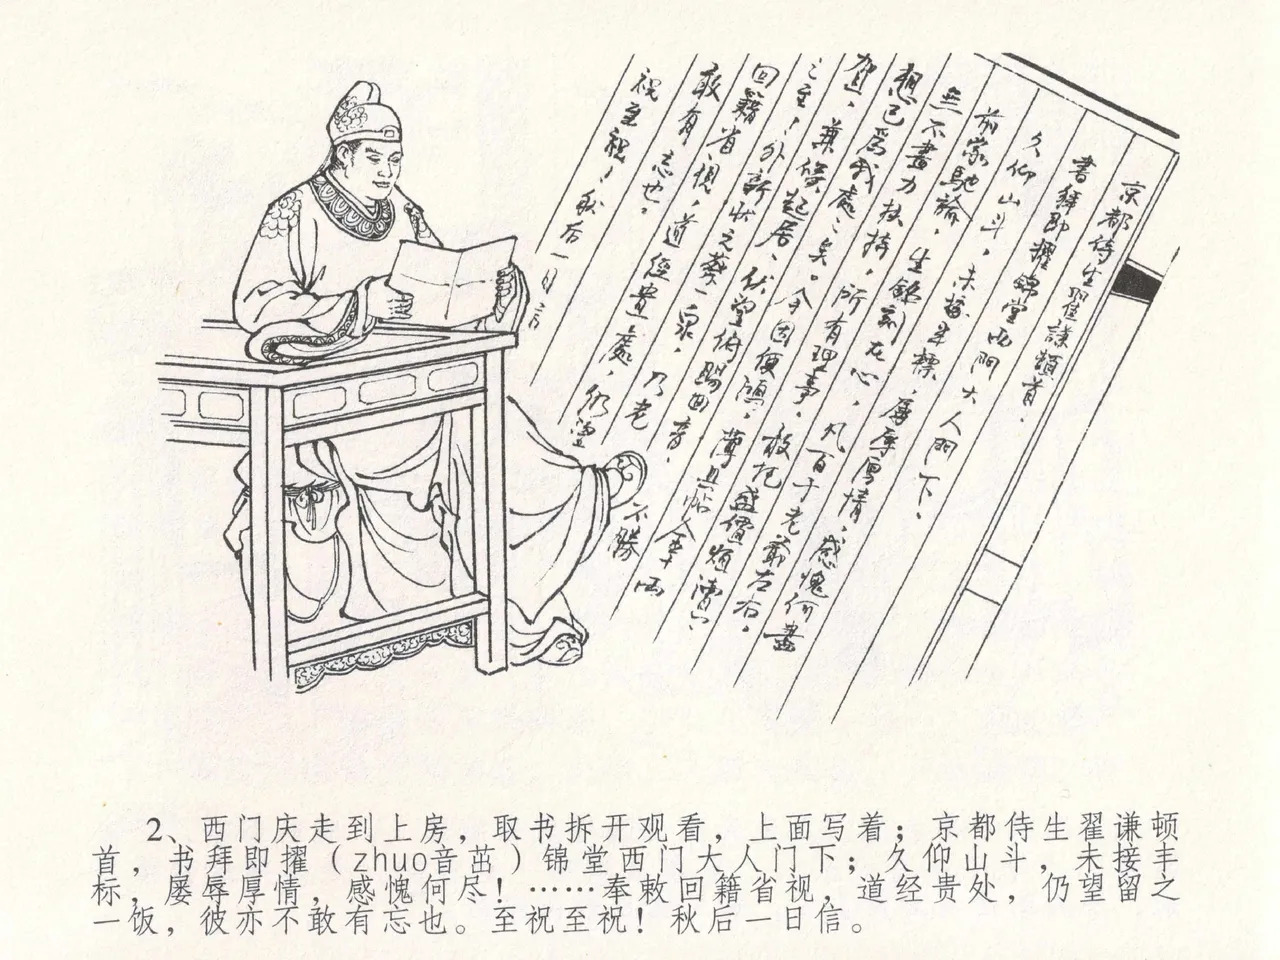 京都侍生翟謙頓首.
書拜即擢錦堂西門大人門下.
久仰山斗,未接丰標.屢辱厚情,感愧何盡
前蒙馳諭,生銘刻在心,凡百于老爺左右,
無不盡力扶持,所有理事,敢托盛價煩瀆,
想已為我處之矣。今因便鴻,薄具帖金
賀,兼候起居,伏望俯賜回音,不勝
之至,外新狀元蔡一泉,乃老
回籍省視,道經貴處,仍望
敢有忘也。
祝至祝,秋后一日
2、西门庆走到上房,取书拆开观看,上面写着;京都侍生翟谦顿
首,书拜即擢(zhuo音茁)锦堂西门大人门下;久仰山斗,未接丰
标,屡辱厚情,感愧何尽!……奉敕回籍省视,道经贵处,仍望留之
一饭,彼亦不敢有忘也。至祝至祝!秋后一日信。